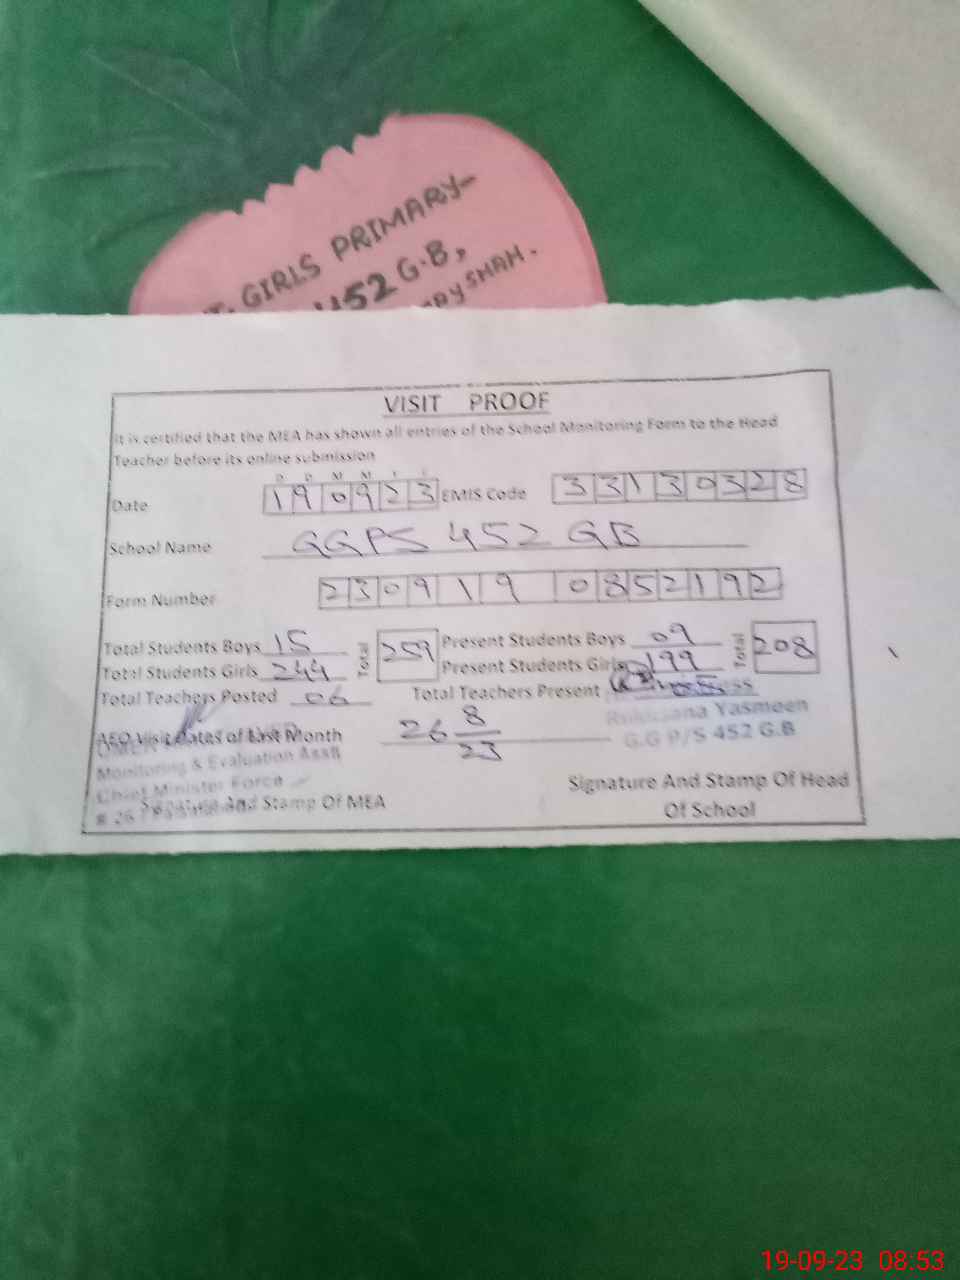 GIRLS PRIMARY-
452 G.B,
SHAH.
VISIT PROOF
It is certified that the MEA has shown all entries of the School Monitoring Form to the Head
Teacher before its online submission
D D M M Y Y
Date 190923 EMIS Code 33130328
School Name GGPS 452 GB
Form Number 230919 0852192
Total Students Boys 15 Total 259 Present Students Boys 09 Total 208
Total Students Girls 244 Present Students Girls 199
Total Teachers Posted 06 Total Teachers Present
AEO Visit Dates of Last Month 26 8/23
Yasmeen
G.G P/S 452 G.B
Monitoring & Evaluation Asstt
Chief Minister Force
Signature And Stamp Of MEA
Signature And Stamp Of Head
Of School
19-09-23 08:53